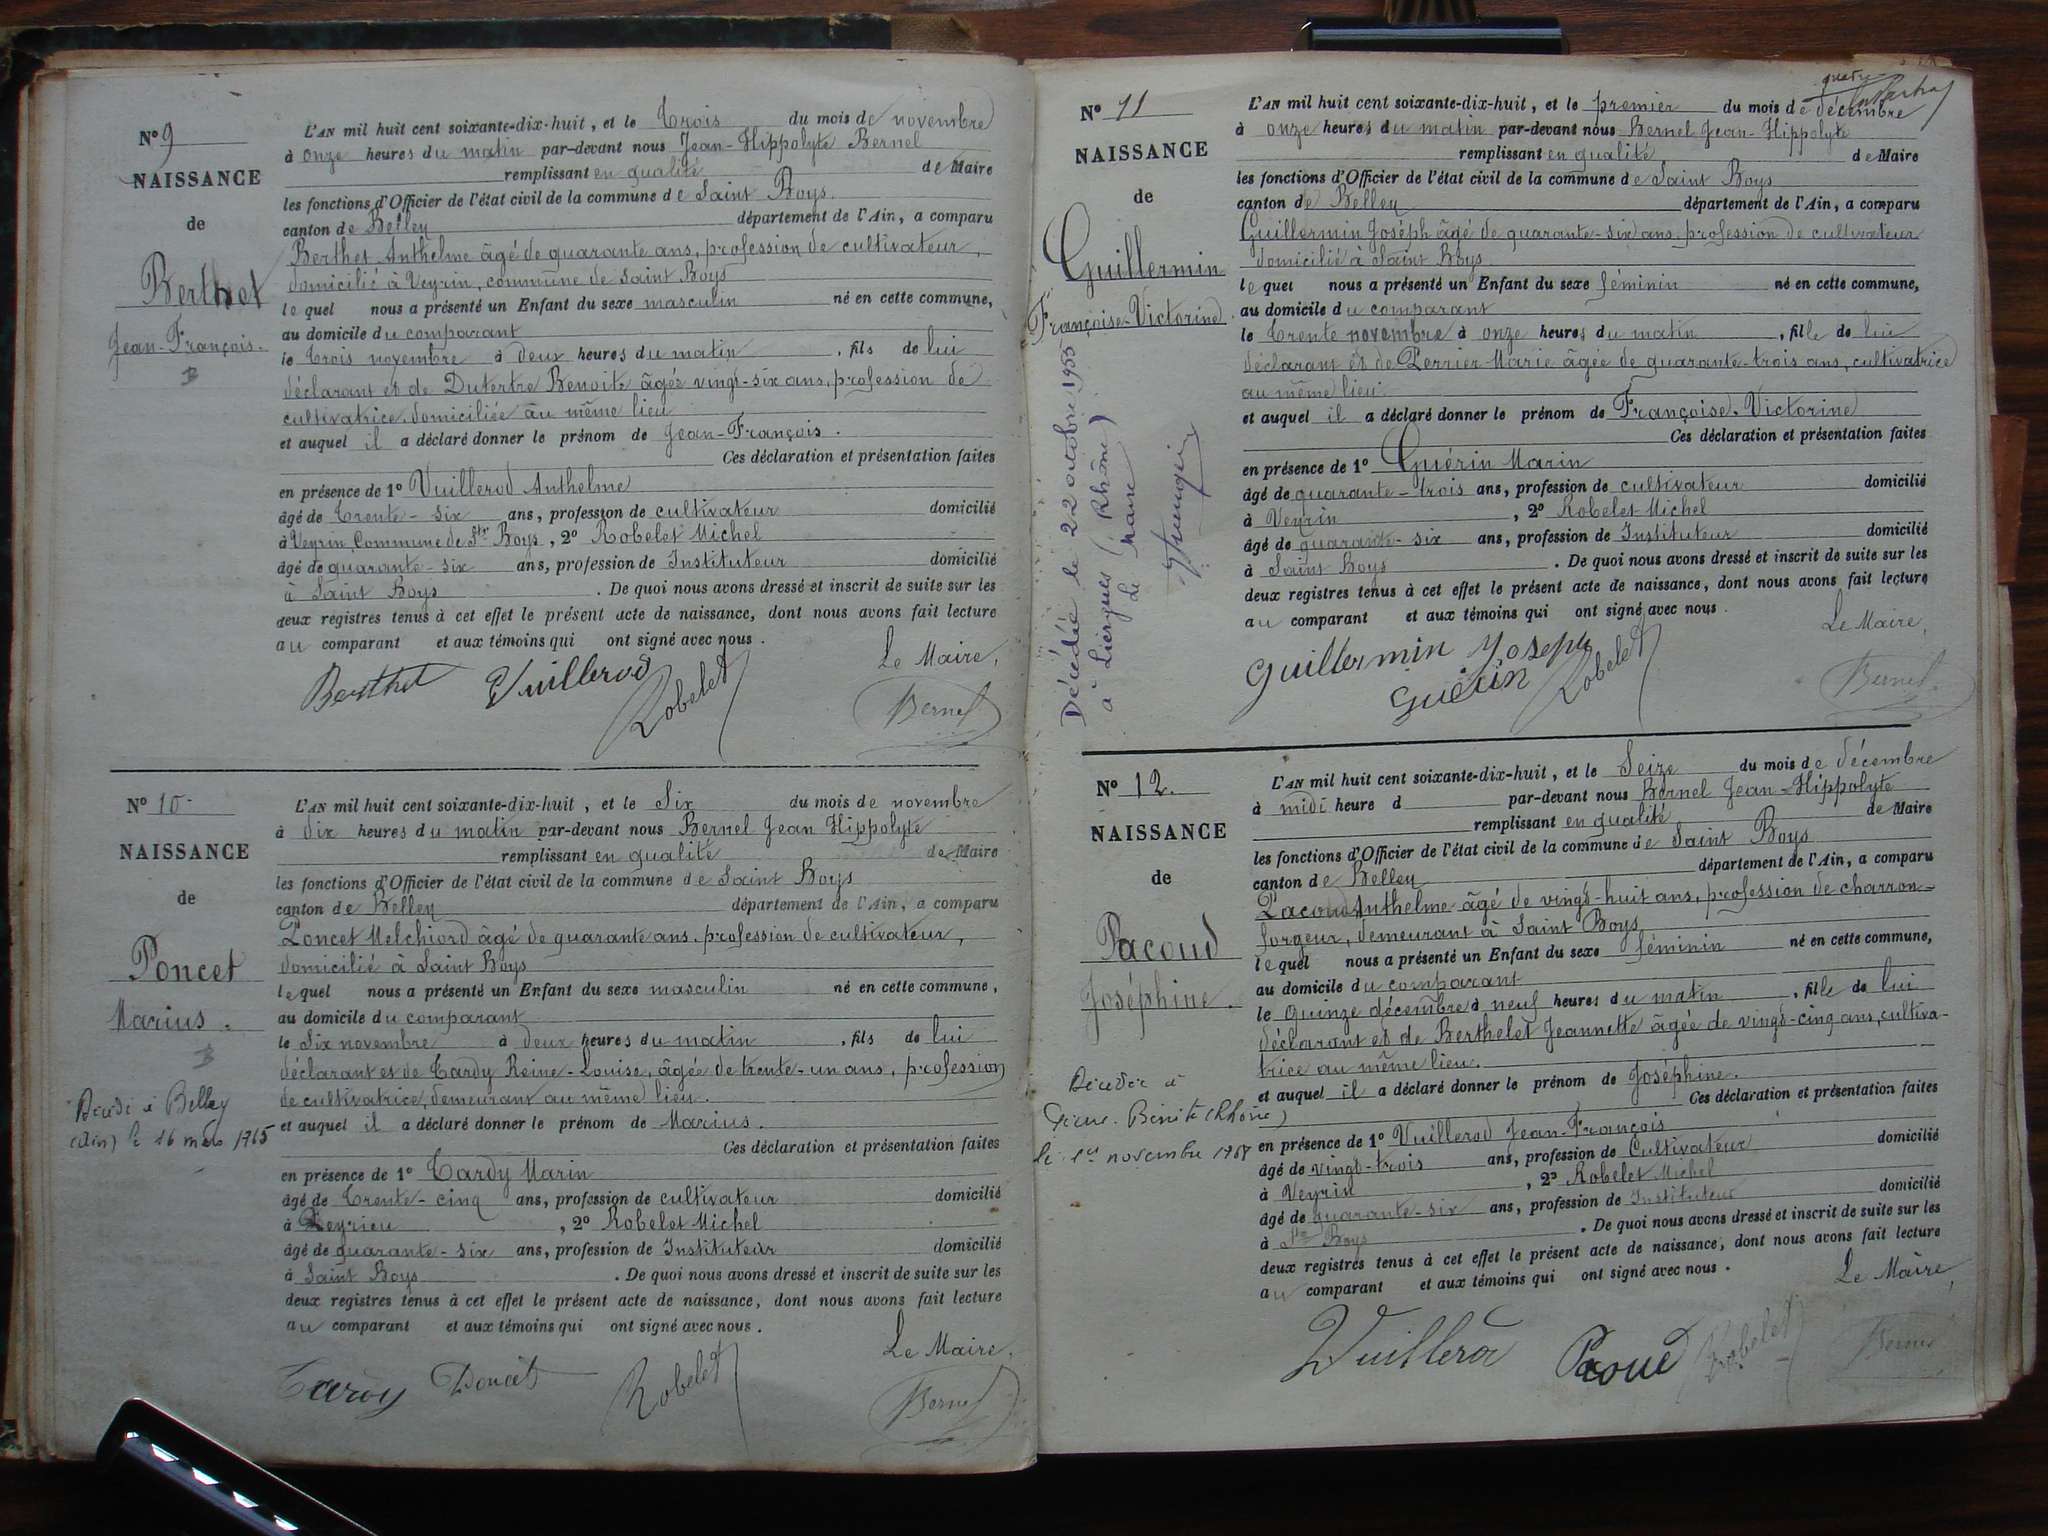 N° 9
NAISSANCE
de
Berthet
Jean-François.
B
L'AN mil huit cent soixante-dix-huit, et le Trois du mois de novembre
à onze heures du matin par-devant nous Jean-Hippolyte Bernel
remplissant en qualité de Maire
les fonctions d'Officier de l'état civil de la commune de Saint Boys.
canton de Belley département de l'Ain, a comparu
Berthet Anthelme âgé de quarante ans, profession de cultivateur,
domicilié à Veyrin, commune de Saint Boys
lequel nous a présenté un Enfant du sexe masculin né en cette commune,
au domicile du comparant
le trois novembre à deux heures du matin, fils de lui
déclarant et de Dutertre Benoite âgée vingt-six ans, profession de
cultivatrice domiciliée au même lieu
et auquel il a déclaré donner le prénom de Jean-François.
Ces déclaration et présentation faites
en présence de 1° Vuillerod Anthelme
âgé de trente-six ans, profession de cultivateur domicilié
à Veyrin, Commune de St Boys, 2° Robelet Michel
âgé de quarante-six ans, profession de Instituteur domicilié
à Saint Boys. De quoi nous avons dressé et inscrit de suite sur les
deux registres tenus à cet effet le présent acte de naissance, dont nous avons fait lecture
au comparant et aux témoins qui ont signé avec nous.
Le Maire,
Berthet Vuillerod Robelet Bernel
N° 10
NAISSANCE
de
Poncet
Marius.
B
Décédé à Belley
(Ain) le 16 mars 1965
L'AN mil huit cent soixante-dix-huit, et le Six du mois de novembre
à dix heures du matin par-devant nous Bernel Jean Hippolyte
remplissant en qualité de Maire
les fonctions d'Officier de l'état civil de la commune de Saint Boys
canton de Belley département de l'Ain, a comparu
Poncet Melchiord âgé de quarante ans, profession de cultivateur,
domicilié à Saint Boys
lequel nous a présenté un Enfant du sexe masculin né en cette commune,
au domicile du comparant
le Six novembre à deux heures du matin, fils de lui
déclarant et de Tardy Reine-Louise, âgée de trente-un ans, profession
de cultivatrice, demeurant au même lieu.
et auquel il a déclaré donner le prénom de Marius.
Ces déclaration et présentation faites
en présence de 1° Tardy Marin
âgé de Trente-cinq ans, profession de cultivateur domicilié
à Peyrieu, 2° Robelet Michel
âgé de quarante-six ans, profession de Instituteur domicilié
à Saint Boys. De quoi nous avons dressé et inscrit de suite sur les
deux registres tenus à cet effet le présent acte de naissance, dont nous avons fait lecture
au comparant et aux témoins qui ont signé avec nous.
Le Maire,
Tardy Poncet Robelet Bernel
quatre
N° 11
NAISSANCE
de
Guillermin
Françoise-Victorine
Décédée le 22 octobre 1955
à Liergues (Rhône)
Le maire
L'AN mil huit cent soixante-dix-huit, et le premier du mois de décembre
à onze heures du matin par-devant nous Bernel Jean-Hippolyte
remplissant en qualité de Maire
les fonctions d'Officier de l'état civil de la commune de Saint Boys
canton de Belley département de l'Ain, a comparu
Guillermin Joseph âgé de quarante-six ans profession de cultivateur
domicilié à Saint Boys
lequel nous a présenté un Enfant du sexe féminin né en cette commune,
au domicile du comparant
le trente novembre à onze heures du matin, fille de lui
déclarant et de Perrier Marie âgée de quarante-trois ans, cultivatrice
au même lieu.
et auquel il a déclaré donner le prénom de Françoise-Victorine
Ces déclaration et présentation faites
en présence de 1° Guérin Marin
âgé de quarante-trois ans, profession de cultivateur domicilié
à Veyrin, 2° Robelet Michel
âgé de quarante-six ans, profession de Instituteur domicilié
à Saint Boys. De quoi nous avons dressé et inscrit de suite sur les
deux registres tenus à cet effet le présent acte de naissance, dont nous avons fait lecture
au comparant et aux témoins qui ont signé avec nous.
Le Maire,
Guillermin Joseph
Guérin Robelet Bernel
N° 12.
NAISSANCE
de
Pacoud
Joséphine.
Décédée à
Pierre-Bénite (Rhône)
le 1er novembre 1968
L'AN mil huit cent soixante-dix-huit, et le Seize du mois de décembre
à midi heure d par-devant nous Bernel Jean-Hippolyte
remplissant en qualité de Maire
les fonctions d'Officier de l'état civil de la commune de Saint Boys
canton de Belley département de l'Ain, a comparu
Pacoud Anthelme âgé de vingt-huit ans, profession de charron-
forgeur, demeurant à Saint Boys
lequel nous a présenté un Enfant du sexe féminin né en cette commune,
au domicile du comparant
le quinze décembre à neuf heures du matin, fille de lui
déclarant et de Berthelet Jeannette âgée de vingt-cinq ans, cultiva-
trice au même lieu.
et auquel il a déclaré donner le prénom de Joséphine.
Ces déclaration et présentation faites
en présence de 1° Vuillerod Jean-François
âgé de vingt-trois ans, profession de Cultivateur domicilié
à Veyrin, 2° Robelet Michel
âgé de quarante-six ans, profession de Instituteur domicilié
à St Boys. De quoi nous avons dressé et inscrit de suite sur les
deux registres tenus à cet effet le présent acte de naissance, dont nous avons fait lecture
au comparant et aux témoins qui ont signé avec nous.
Le Maire,
Vuillerod Pacoud Robelet Bernel